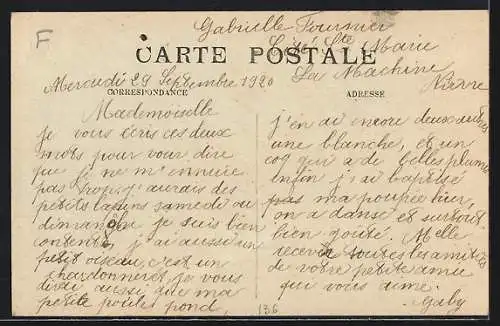 F
Gabrielle Fournier
Cité Ste Marie
CARTE POSTALE
La Machine
Nièvre
Mercredi 29 Septembre 1920
CORRESPONDANCE
ADRESSE
Mademoiselle
je vous écris ces deux
mots pour vous dire
que je ne m'ennuie
pas trop, j'aurais des
petits lapins samedi ou
dimanche je suis bien
contente, j'ai aussi un
petit oiseau, c'est un
chardonneret, je vous
dirai aussi que ma
petite poule pond,
j'en ai encore deux autres
une blanche, et un
coq qui a de belles plumes
Enfin j'ai baptisé
pas ma poupée hier,
on a dansé et surtout
bien gouté. Melle
recevez toutes les amitiés
de votre petite amie
qui vous aime.
Gaby
136